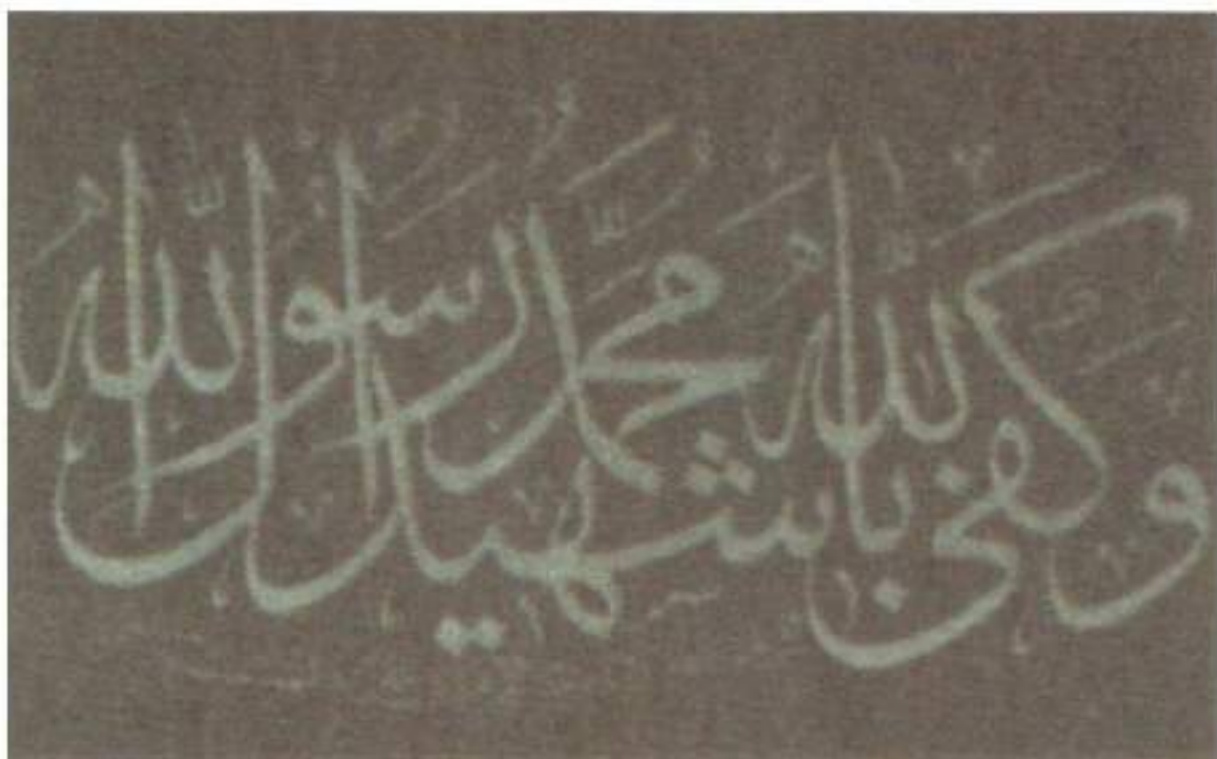 وكفى بالله شهيدا محمد رسول الله